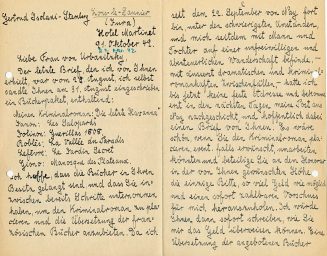 Gertrud Isolani-Sternberg
(Jura)
Hotel Martinet
9. Oktober 42.
Liebe Frau von Urbanitzky
Der letzte Brief, den ich von Ihnen
erhielt war vom 28. August, ich selbst
sandte Ihnen am 31. August eingeschrieben
ein Bücherpaket, enthaltend:
meinen Kriminalroman: Die letzte Havanna
Danon: Les
Dolman: Guerillas 1808.
Robles: La Vallée du Paradis
Giono: Manosque des Plateaux
Ich hoffe, dass die Bücher in Ihren
Besitz gelangt sind und dass Sie in-
zwischen bereits Schritte unternommen
haben, um den Kriminalroman zu pla-
cieren und die Übersetzung der fran-
zösischen Bücher anzubieten. Da ich
seit dem 22. September von
bin, unter den schwierigsten Umständen,
und mich seitdem mit Mann und
Tochter auf einer unfreiwilligen und
abenteuerlichen Wanderschaft befinde, -
mit äusserst dramatischen und kriminal-
romanhaften Zwischenfällen - hatte ich
bis jetzt keine feste Adresse und bekomme
erst in den nächsten Tagen, meine Post aus
Vay nachgeschickt und, hoffentlich dabei
einen Brief von Ihnen. Es wäre
schön, wenn Sie den Kriminalroman
event. falls erwünscht, umarbeiten
könnten und beteilige Sie an den Honoraren
in der von Ihnen gewünschten Höhe,
die einzige Bitte, so viel Geld wie möglich
und einen sofort zahlbaren Vorschuss
für mich herauszuholen. Ich würde
Ihnen dann sofort schreiben, wie Sie
mir das Geld überweisen können. Eine
Übersetzung der angebotenen Bücher